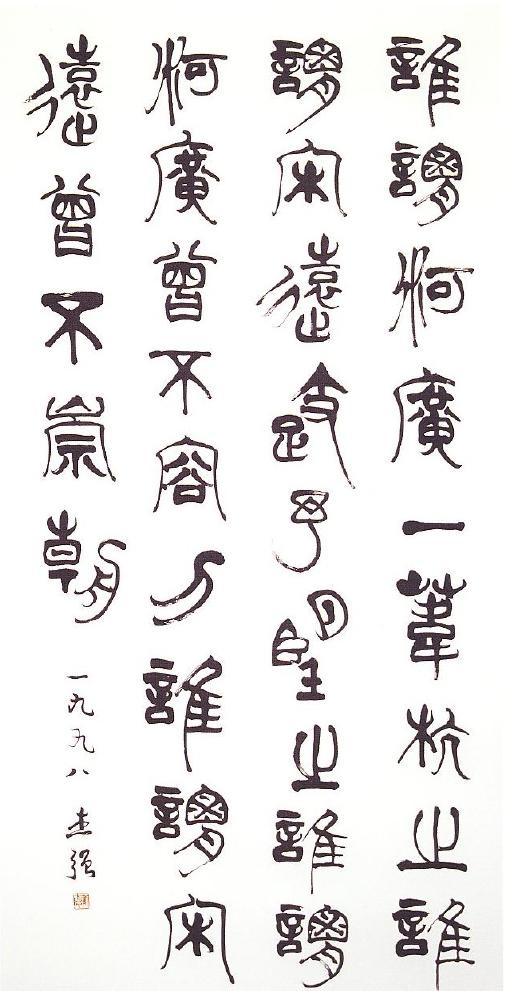 誰謂河廣一葦杭之誰
謂宋遠跂予望之誰謂
河廣曾不容刀誰謂宋
遠曾不崇朝
一九九八 杰强